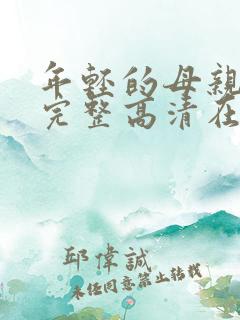 年轻的母亲
完整高清在
邱偉誠
未经同意禁止转载